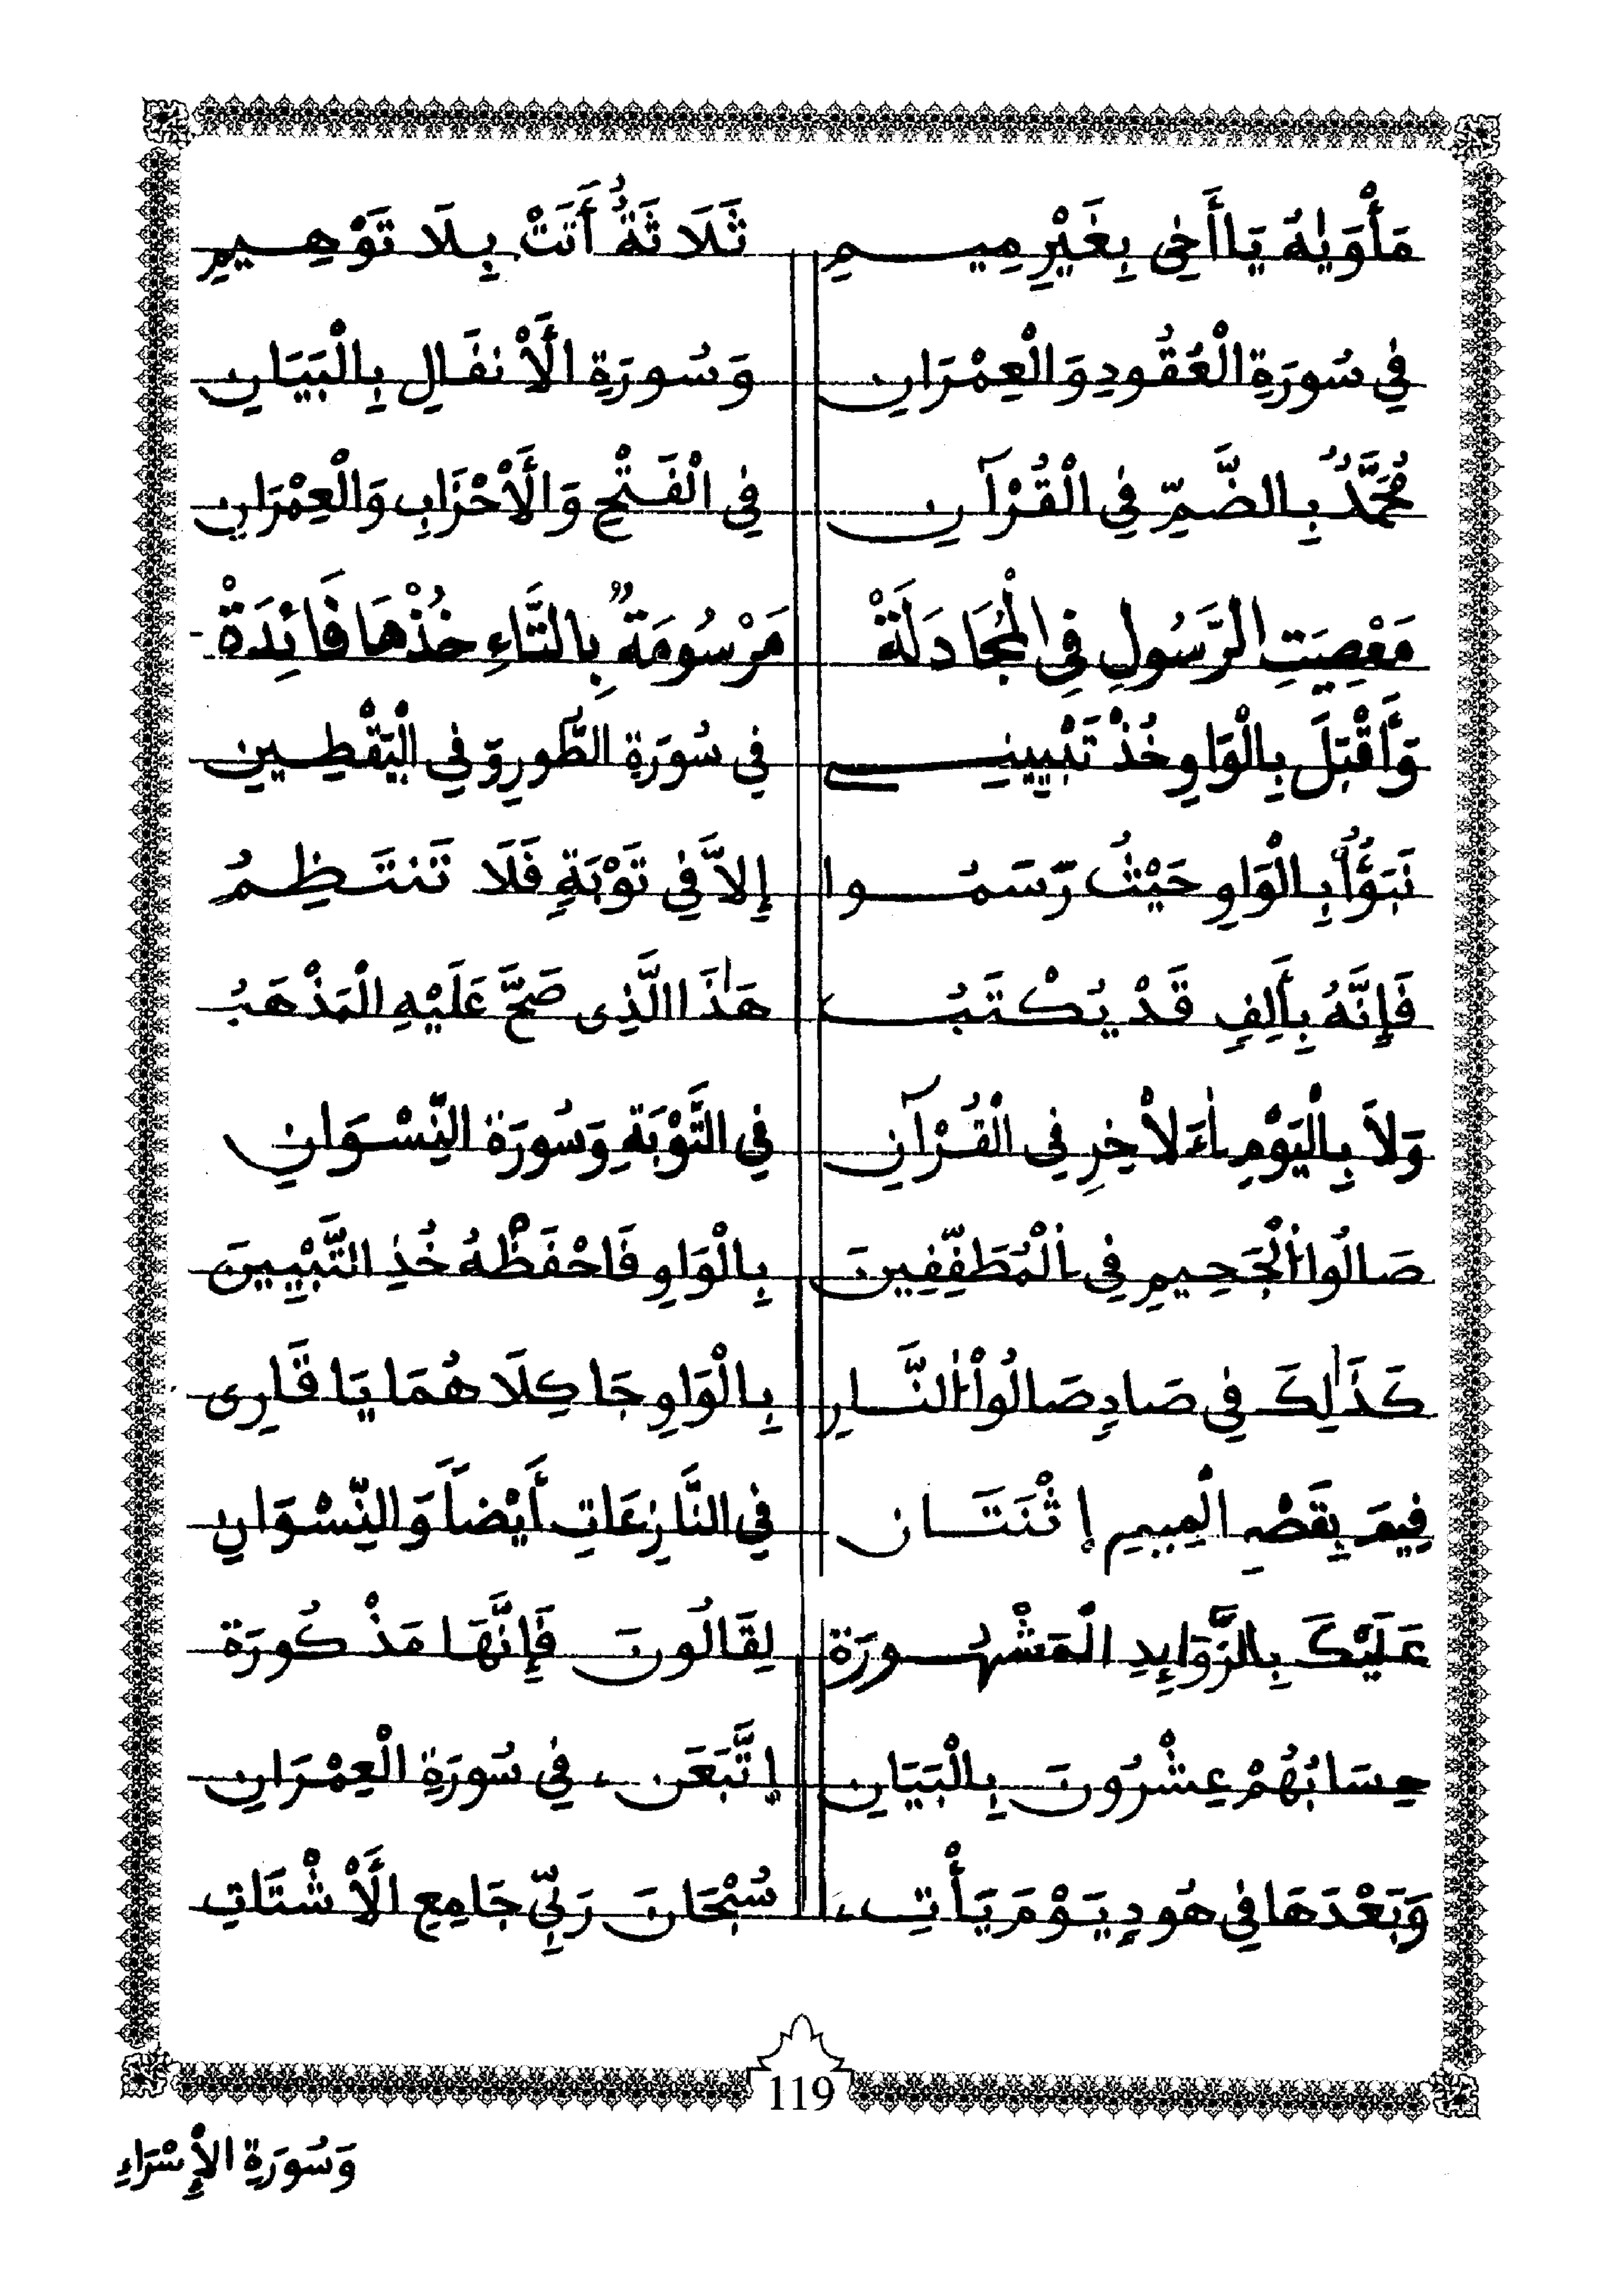 مَأْوَيٰهُ يَا أَخِي بِغَيْرِ مِيمِ ثَلَاثَةٌ أَتَتْ بِلَا تَوْهِيمِ
فِي سُورَةِ الْعُقُودِ وَالْعِمْرَانِ وَسُورَةِ الْأَنْفَالِ بِالْبَيَانِ
مُحَمَّدٌ بِالضَّمِّ فِي الْقُرْآنِ فِي الْفَتْحِ وَالْأَحْزَابِ وَالْعِمْرَانِ
مَعْصِيَتِ الرَّسُولِ فِي الْمُجَادَلَةْ مَرْسُومَةٌ بِالتَّاءِ خُذْهَا فَائِدَةْ
وَأَقْبَلَ بِالْوَاوِ خُذْ تَبْيِينِي فِي سُورَةِ الطُّورِ وَفِي الْيَقْطِينِ
نَبَؤٌا بِالْوَاوِ حَيْثُ رَسَمُوا إِلَّا فِي تَوْبَةٍ فَلَا تَنتَظِمُ
فَإِنَّهُ بِأَلِفٍ قَدْ يُكْتَبُ هَٰذَا الَّذِى صَحَّ عَلَيْهِ الْمَذْهَبُ
وَلَا بِالْيَوْمِ اءَلَاْخِرِ فِى الْقُرْآنِ فِي التَّوْبَةِ وَسُورَةِ النِّسْوَانِ
صَالُوا الْجَحِيمِ فِي الْمُطَفِّفِينَ بِالْوَاوِ فَاحْفَظْهُ خُذِ التَّبْيِينَ
كَذَٰلِكَ فِي صَادِ صَالُوا النَّارِ بِالْوَاوِ جَا كِلَاهُمَا يَا قَارِى
فِيمَ بِقَصْهِ الْمِيمِ إِثْنَتَانِ فِي النَّازِعَاتِ أَيْضاً وَالنِّسْوَانِ
عَلَيْكَ بِالزَّوَايِدِ الْمَشْهُورَة لِقَالُونَ فَإِنَّهَا مَذْكُورَة
حِسَابُهُمْ عِشْرُونَ بِالْبَيَانِ إِتَّبَعَنِ ے فِي سُورَةِ الْعِمْرَانِ
وَبَعْدَهَا فِي هُودِ يَوْمَ يَأْتِ ے سُبْحَانَ رَبِّي جَامِعِ الْأَشْتَاتِ
119
وَسُورَةِ الْإِسْرَاءِ